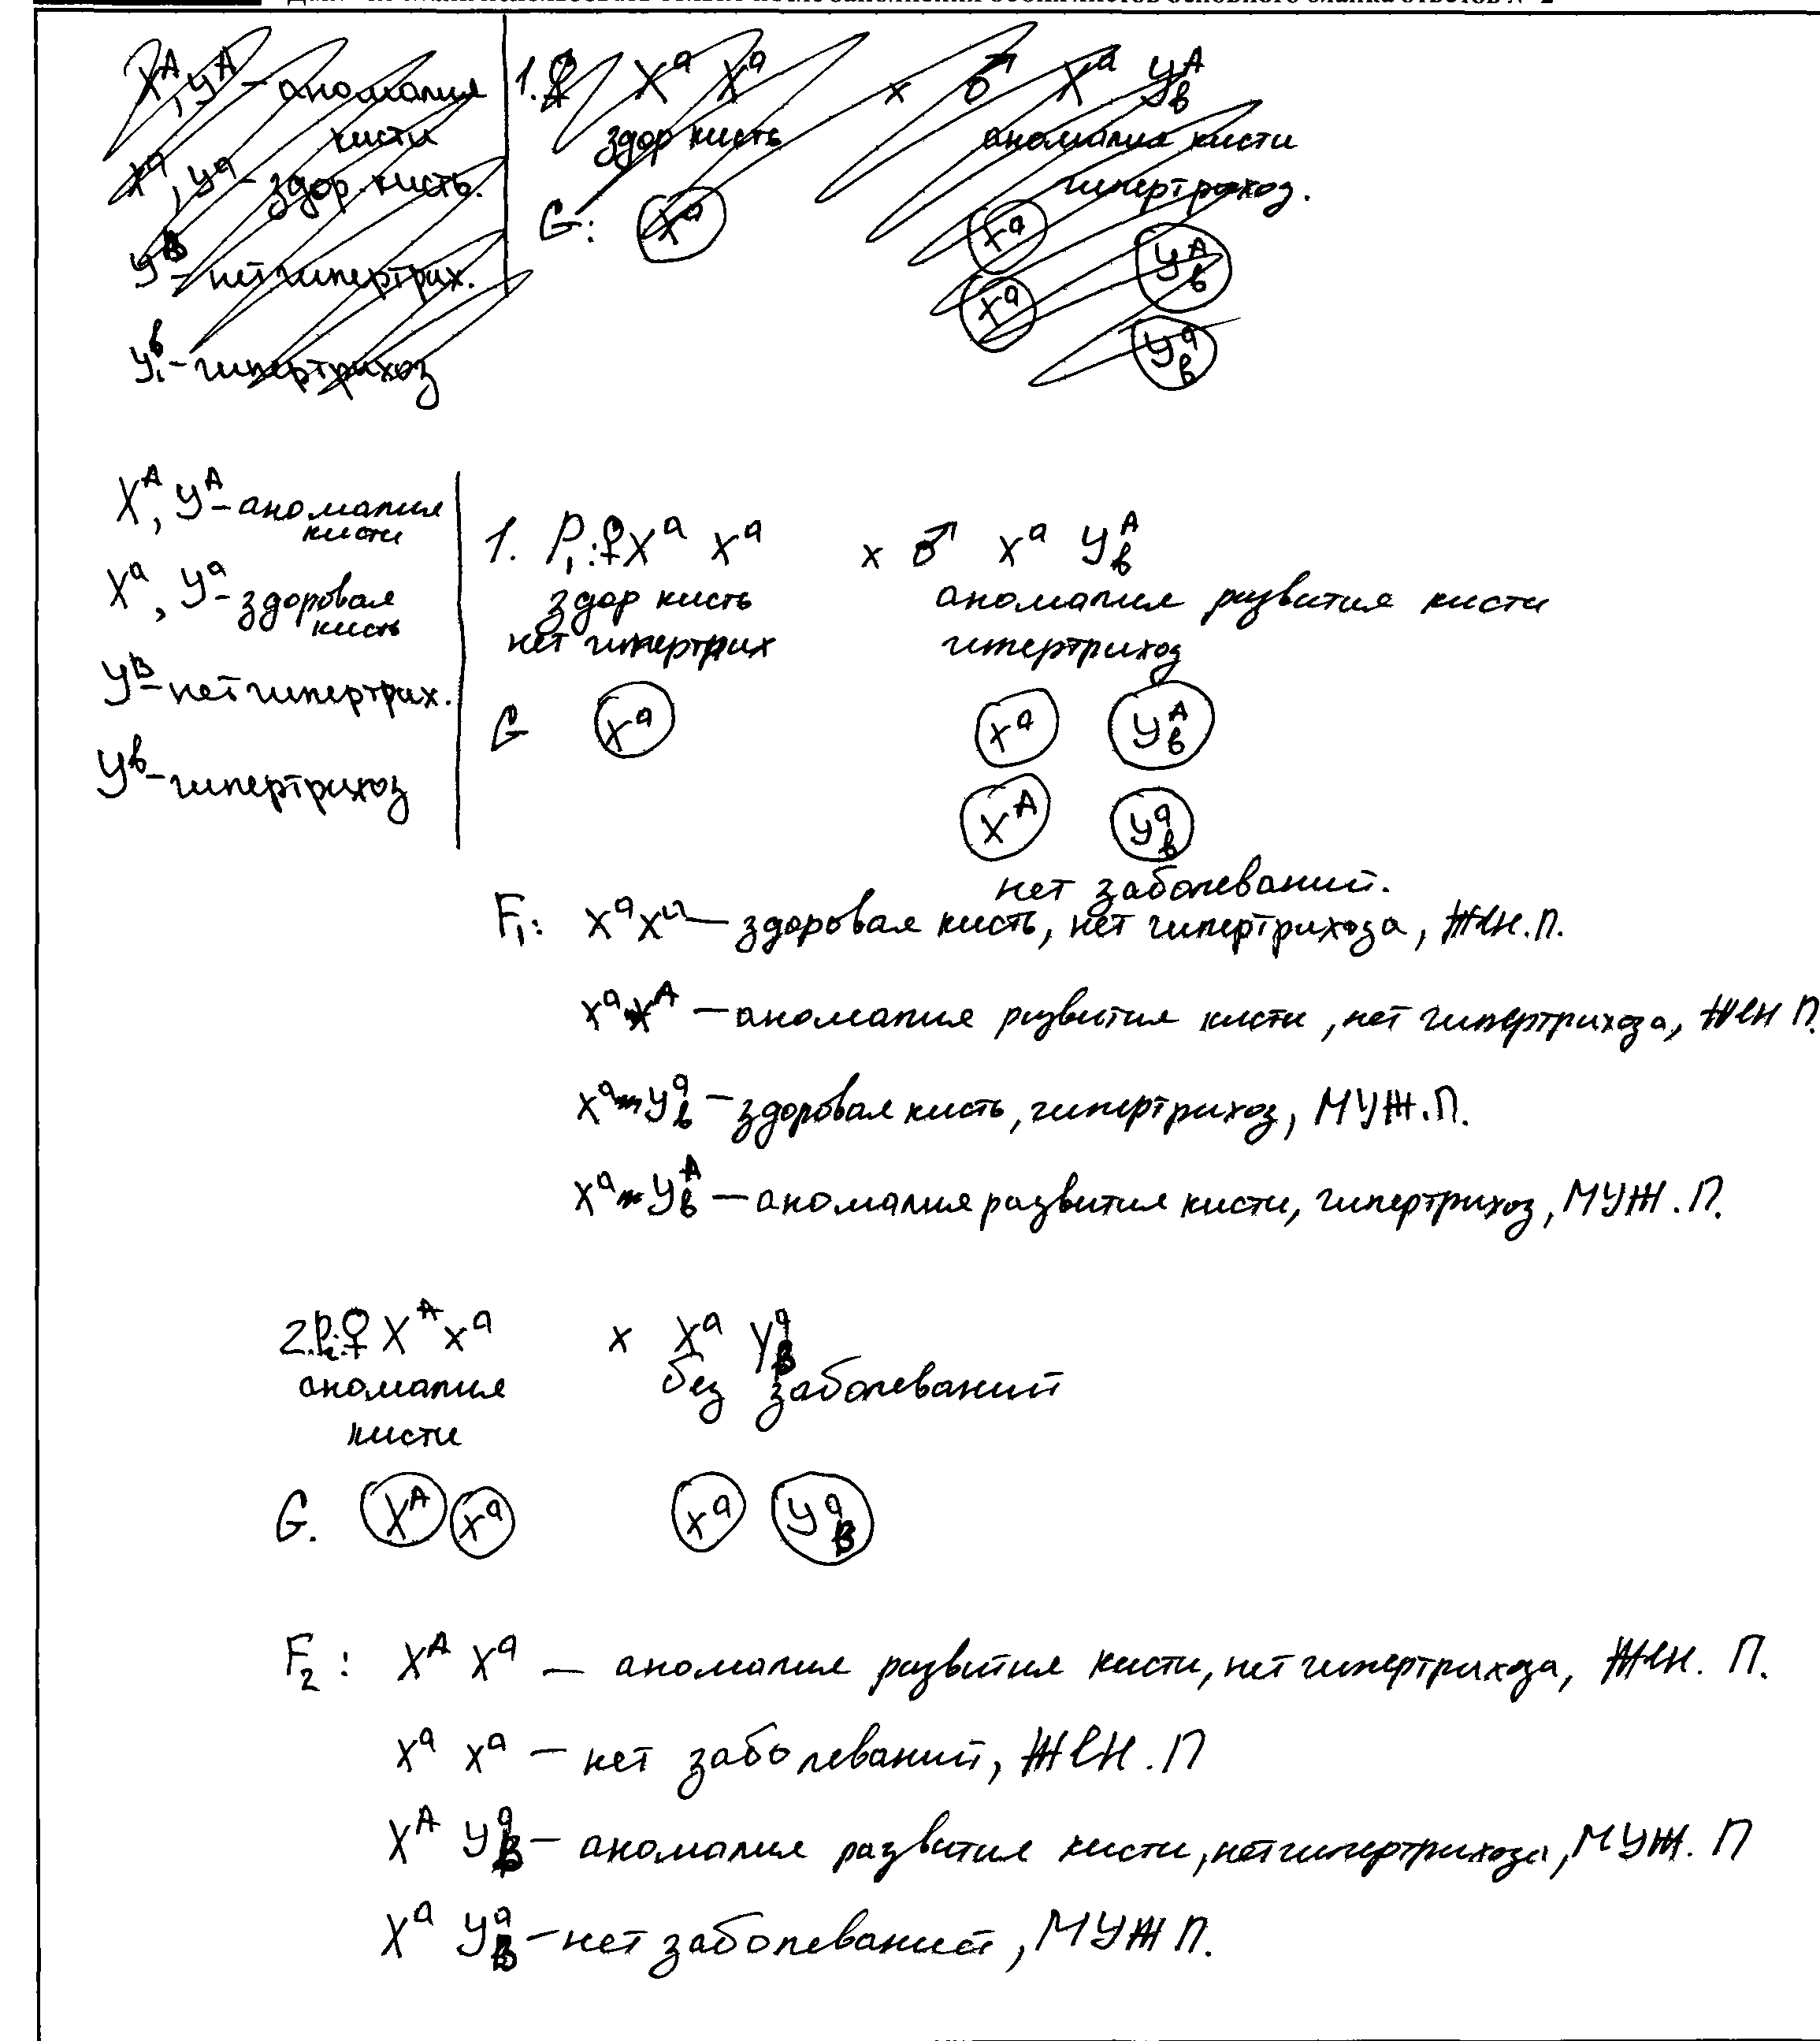 X^A, У^A – аномалия
кисти
X^a, У^a – здор. кисть.
У^B – нет гипертрих.
У^b – гипертрихоз
1. ♀ X^a X^a x ♂ X^a У^A_b
здор кисть аномалия кисти
гипертрихоз.
G: X^a X^a У^A_b
X^a У^a_b
X^A, У^A – аномалия
кисти
X^a, У^a – здоровая
кисть
У^B – нет гипертрих.
У^b – гипертрихоз
1. P₁: ♀ X^a X^a x ♂ X^a У^A_b
здор кисть аномалия развития кисти
нет гипертрих гипертрихоз
G X^a X^a У^A_b
X^A У^a_b
нет заболеваний.
F₁: X^a X^a – здоровая кисть, нет гипертрихоза, ЖЕН. П.
X^a X^A – аномалия развития кисти, нет гипертрихоза, ЖЕН П.
X^a У^a_b – здоровая кисть, гипертрихоз, МУЖ. П.
X^a У^A_b – аномалия развития кисти, гипертрихоз, МУЖ. П.
2. P₂: ♀ X^A X^a x X^a У^a_B
аномалия без заболеваний
кисти
G. X^A X^a X^a У^a_B
F₂: X^A X^a – аномалия развития кисти, нет гипертрихоза, ЖЕН. П.
X^a X^a – нет заболеваний, ЖЕН. П
X^A У^a_B – аномалия развития кисти, нет гипертрихоза, МУЖ. П
X^a У^a_B – нет заболеваний, МУЖ П.